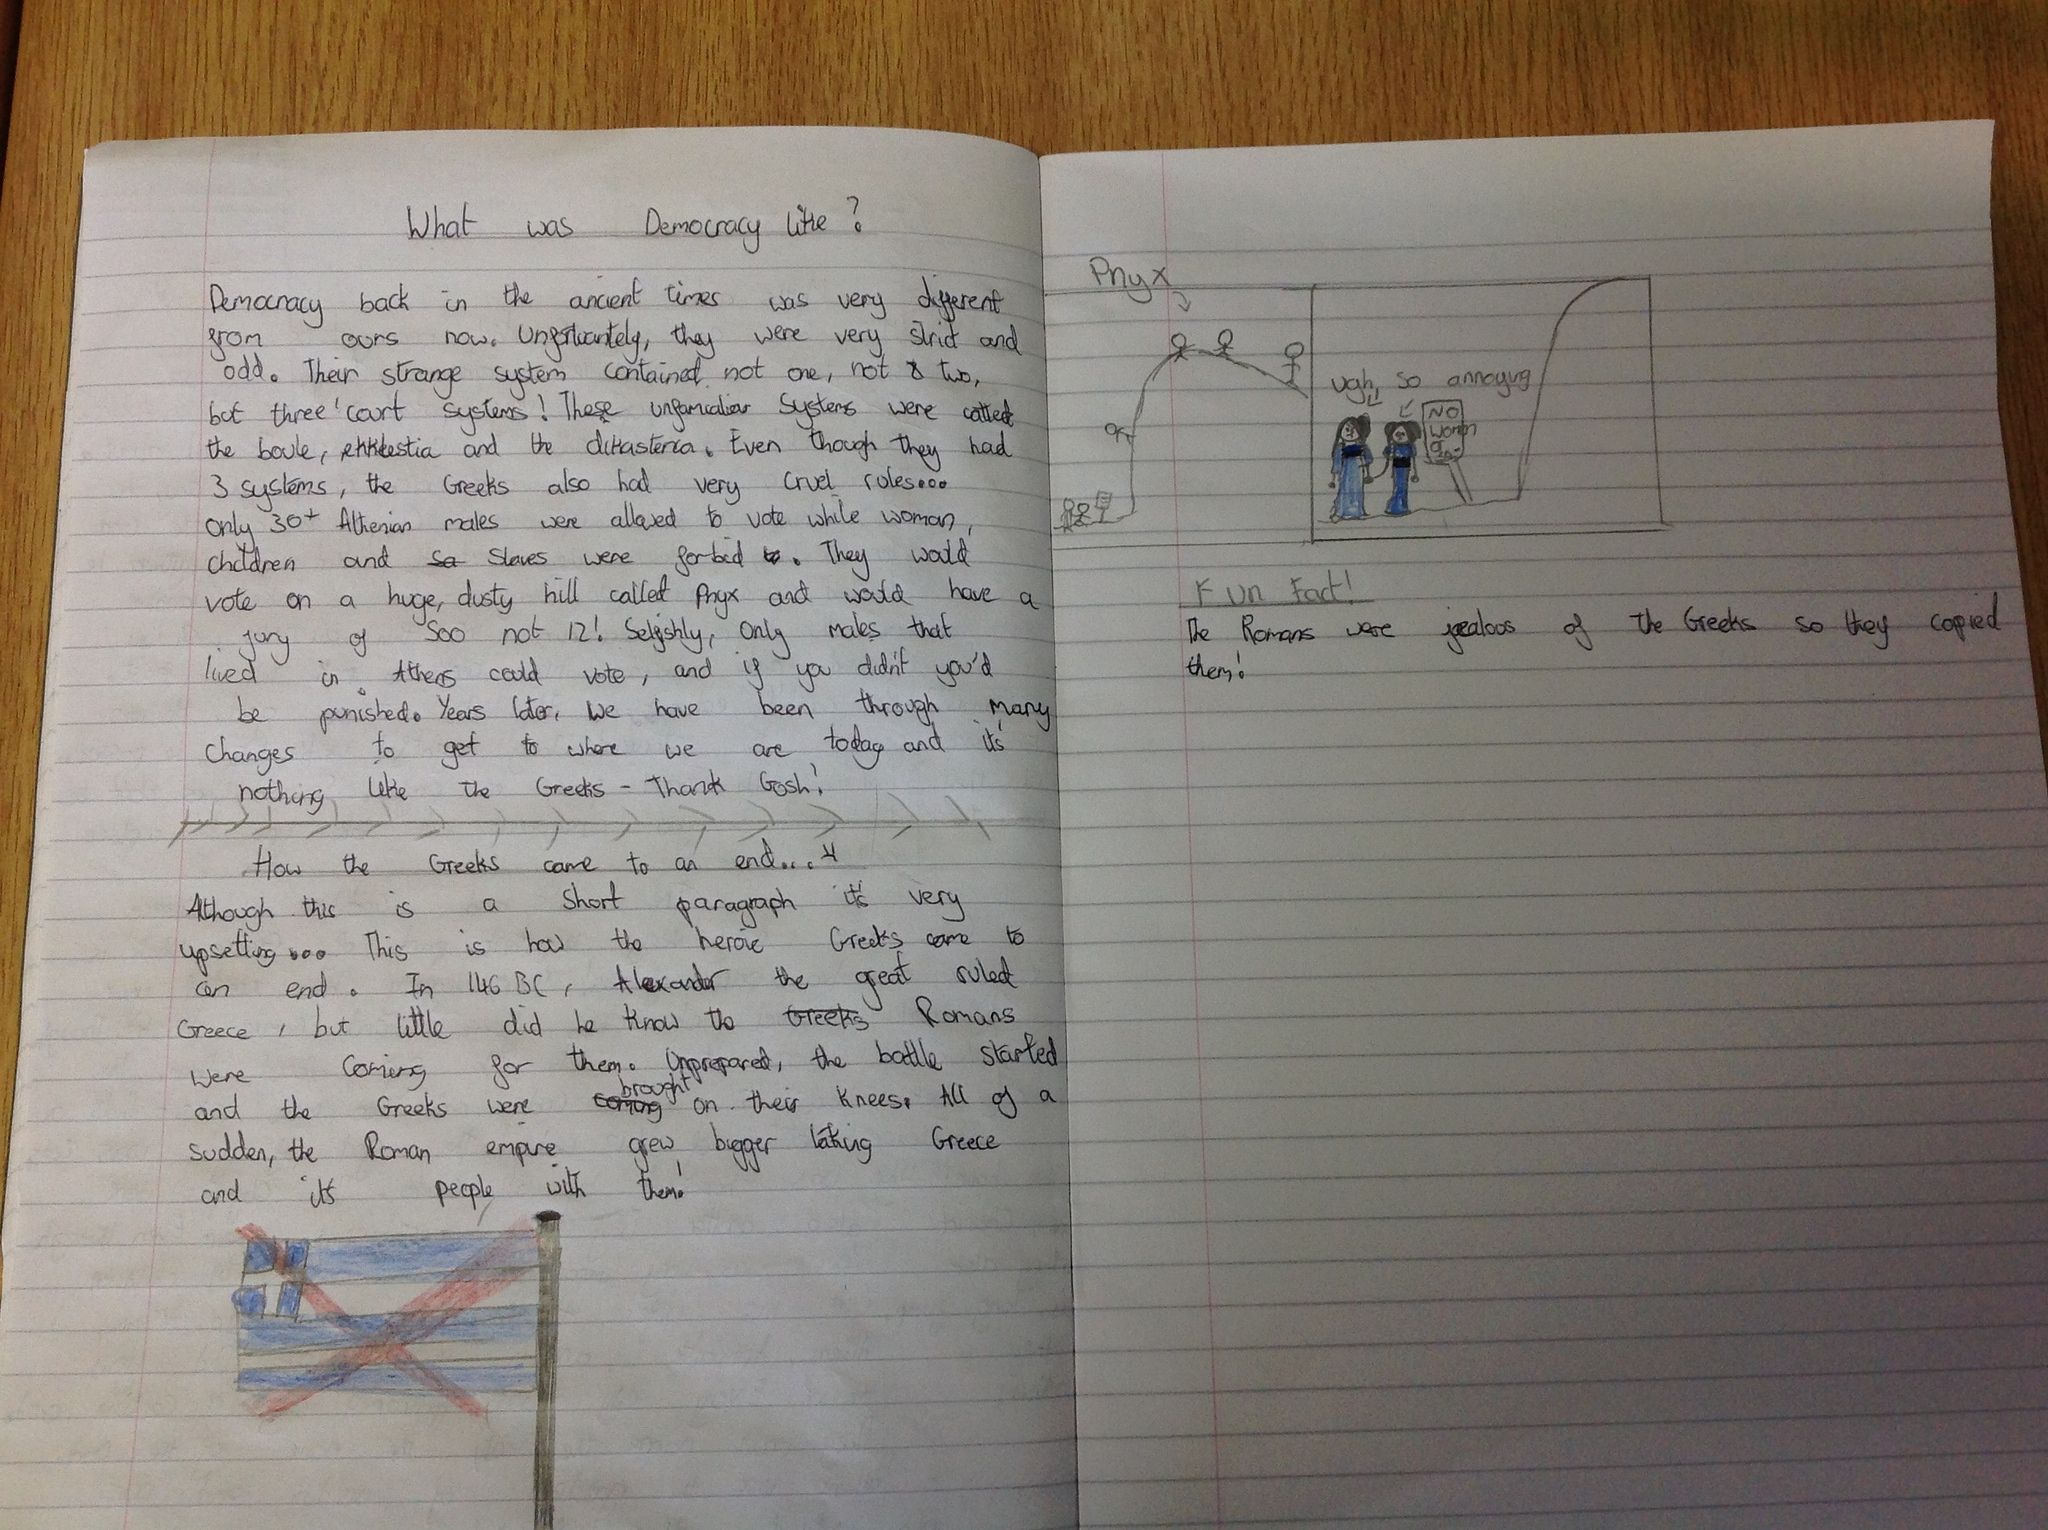 What was Democracy like?
Democracy back in the ancient times was very different
from ours now. Unfortuantely, they were very strict and
odd. Their strange system contained not one, not two,
but three court systems! These unfamialiar systems were called
the boule, ekklestia and the dikasteria. Even though they had
3 systems, the Greeks also had very cruel rules...
Only 30+ Athenian males were allowed to vote while woman,
children and Slaves were forbid. They would
vote on a huge, dusty hill called Pnyx and would have a
jury of 500 not 12! Selfishly, only males that
lived in Athens could vote, and if you didn't you'd
be punished. Years later, We have been through many
changes to get to where we are today and it's
nothing like the Greeks - Thank Gosh!
How the Greeks came to an end...
Although this is a short paragraph it's very
upsetting... This is how the heroic Greeks came to
an end. In 146 BC, Alexander the great ruled
Greece, but little did he know the Greeks Romans
were coming for them. Unprepared, the battle started
and the Greeks were coming brought on their knees. All of a
sudden, the Roman empire grew bigger taking Greece
and it's people with them!
Pnyx
Ugh, so annoying
NO
women
Fun Fact!
The Romans were jealoos of the Greeks so they copied
them!